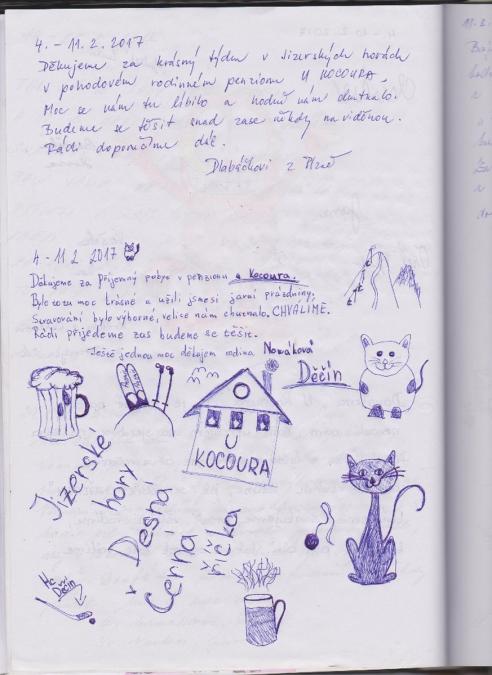 4. - 11. 2. 2017
Děkujeme za krásný týden v Jizerských horách
v pohodovém rodinném penzionu U KOCOURA.
Moc se nám tu líbilo a hodně nám chutnalo.
Budeme se těšit snad zase někdy na viděnou.
Rádi doporučíme dál.
Dlabáčkovi z Plzně
4 - 11 2 2017
Děkujeme za příjemný pobyt v penzionu u Kocoura.
Bylo to zu moc krásné a užili jsme si jarní prázdniny.
Stravování bylo výborné, velice nám chutnalo. CHVÁLÍME.
Rádi přijedeme zas budeme se těšit.
Ještě jednou moc děkujem rodina Nowáková
Děčín
U
KOCOURA
Jizerské
hory
v Desná
Černá
říčka
HC
Děčín